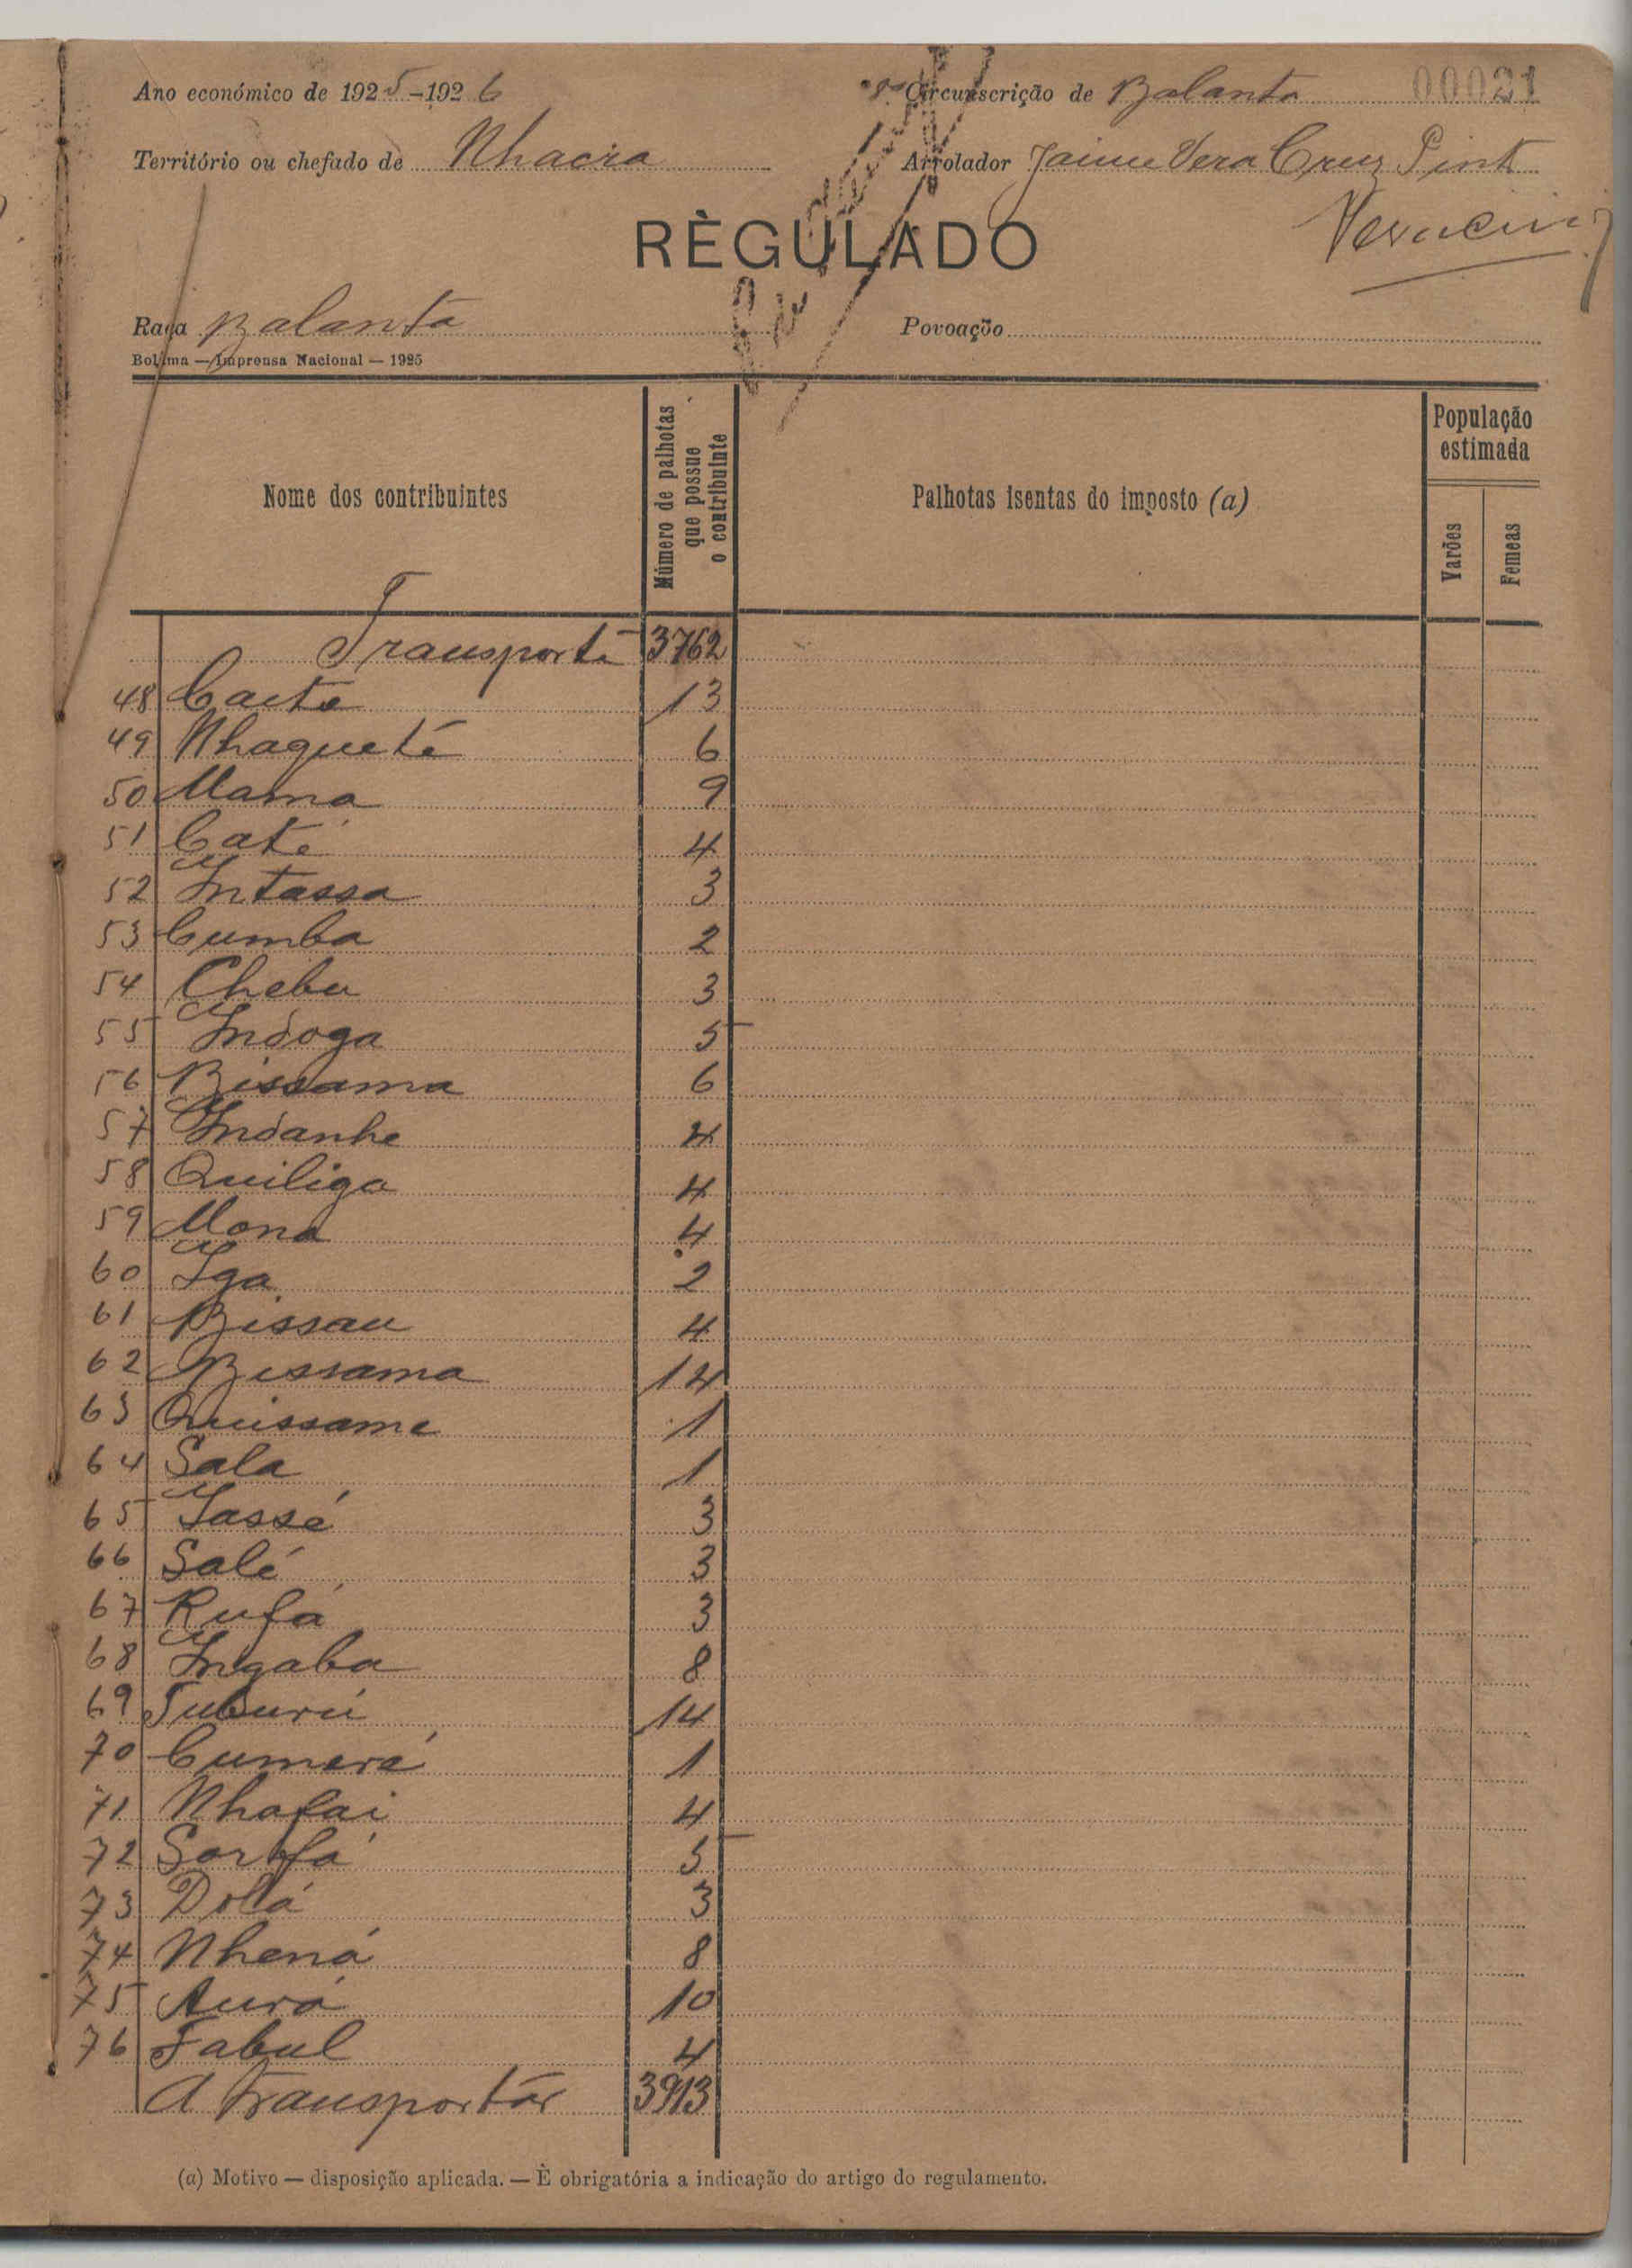 Ano económico de 1925-1926 Circunscrição de Balanta 00021
Território ou chefado de Nhacra Arrolador Jaime Vera Cruz Pinto
RÈGULADO
Raça Balanta Povoação
Bolama — Imprensa Nacional — 1925
Nome dos contribuintes Número de palhotas que possue o contribuinte Palhotas isentas do imposto (a) População estimada Varões Femeas
Transporte 3762
48 Caeta 13
49 Nhagueté 6
50 Mama 9
51 Caté 4
52 Intassa 3
53 Cumba 2
54 Chebu 3
55 Indoga 5
56 Bissama 6
57 Indanhe 4
58 Quiliga 4
59 Mona 4
60 Iga 2
61 Bissau 4
62 Bissama 14
63 Quissame 1
64 Sala 1
65 Iassé 3
66 Salé 3
67 Rufá 3
68 Ingaba 8
69 Tuburú 14
70 Cumeré 1
71 Nhafai 4
72 5
73 Dolá 3
74 Nhená 8
75 Aurá 10
76 Fabul 4
A transportar 3913
(a) Motivo — disposição aplicada. — È obrigatória a indicação do artigo do regulamento.